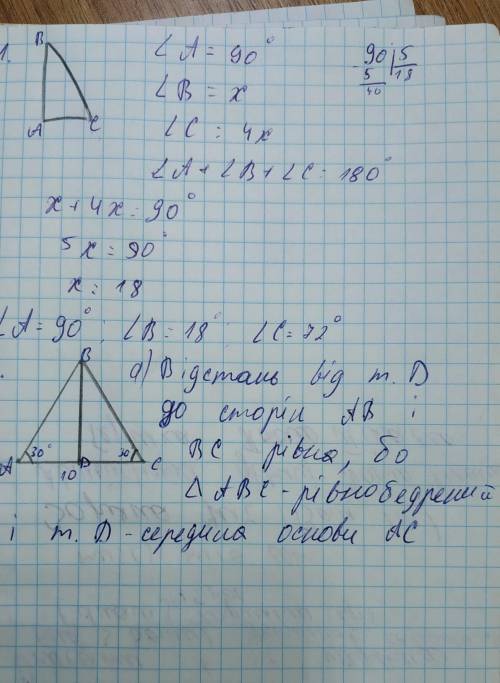 1.
B
A
C
∠A = 90°
∠B = x
∠C = 4x
90 | 5
- 5 18
40
∠A + ∠B + ∠C = 180°
x + 4x = 90°
5x = 90°
x = 18
∠A = 90°; ∠B = 18°; ∠C = 72°
B
A 30° 10 D 30° C
а) Відстань від т. D
до сторін AB і
BC рівна, бо
△ABC - рівнобедрений
і т. D - середина основи AC